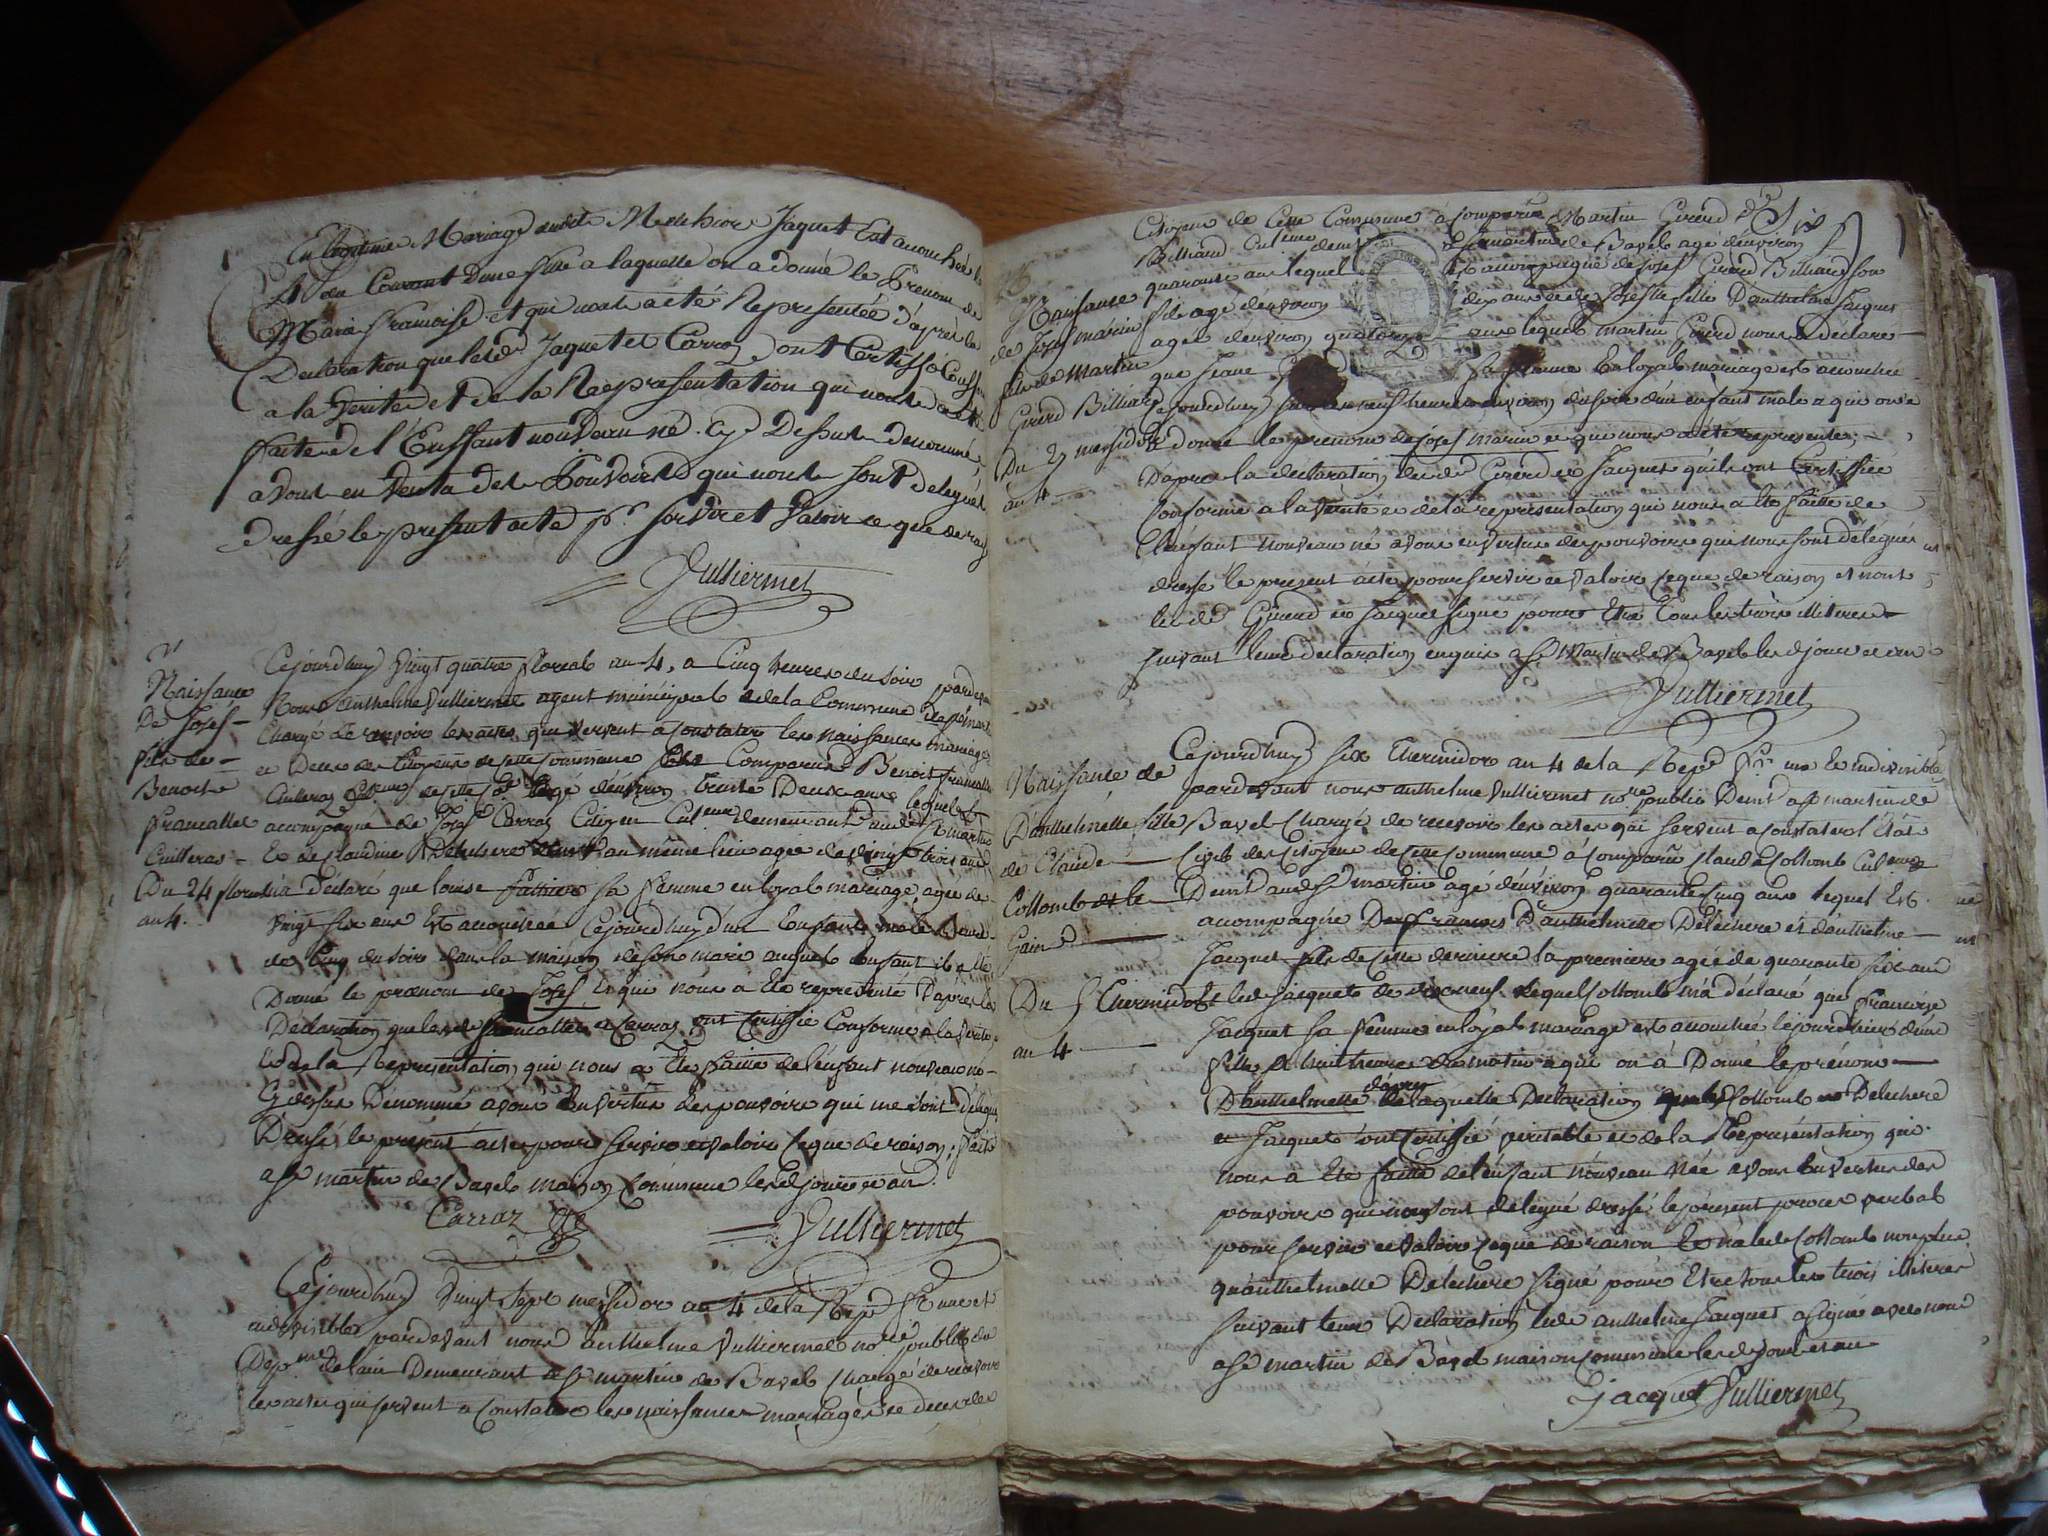 En légitime Mariage audit Melchior Jaquet Est accouchée le
4 du Courant Dune fille a laquelle on a donné le Prenom de
Marie françoise et qui nous a été Representée d'après la
Declaration que lesd Jaquet et Carroz ont Certiffié Conforme
a la Verité et de la Representation qui nous a été
faite de l'Enffant nouveau né cy Dessus denommé
avons en Vertu des Pouvoirs qui nous sont delegués
dressé le present acte pr servir et Valoir ce que de raison
Vulliermet
Naissance
De Josef
fils de
Benoit
francallet
Cuilleras
Du 24 floreal
an 4.
Cejourdhuy Vingt quatre floreal an 4, a Cinq heures du soir pardevant
Nous Anthelme Vulliermet agent municipal de la Commune de st mart
Chargé de recevoir les actes qui servent a constater les naissances mariages
et Deces des Citoyens de cette Commune Est Comparu Benoit francallet
Cuilleraz Culteur de cette age d'environ trente Deux ans lequel Est
accompagné de Josef Carraz Citoyen Culteur demeurant audt st martin
Et de Claudine Delechere demt au même lieu agée de Vingt trois ans
m'a déclaré que louise sa femme en loyal mariage, agée de
vingt six ans Est accouchée Cejourdhuy d'un Enfant male
de Cinq du soir dans la maison de son mari auquel enfant il a été
Donné le prenom de Josef Et qui nous a été representé D'après la
Déclaration que lesd francallet et Carraz ont Certiffié Conforme a la Verité
Et de la Representation qui nous a Eté faitte de l'enfant nouveau né
Cy dessus Dénommé avons En vertus des pouvoirs qui me sont Délégué
Dressé le présent acte pour servir et valoir ce que de raison, fait
a St martin de Bavel maison Commune lesd jour et an.
Carraz Vulliermet
Cejourdhuy Vingt Sept messidor an 4 de la Repe fr une et
indivisible pardevant nous Anthelme Vulliermet nore public du
Depme de lain Demeurant a St martin de Bavel Chargé de recevoir
les actes qui servent a Constater les naissances mariages et deces des
Citoyens de Cette Commune à Comparu Martin Girerd dt
Billiard Culteur demt a St martin de Bavel agé d'environ
quarante ans lequel Est accompagné de Josef Girerd Billiard son
fils agé d'environ dix ans et de fille D'anthelme Jacquet
agée d'environ quatorze ans lequel martin Girerd nous a déclaré
que Jeane sa femme En loyal mariage est accouchée
cejourdhuy neuf heures environ du soir d'un enfant male a qui on a
donné le prenom de Josef marin et qui nous a été representé,
D'apres la declaration desd Girerd et Jacquet qu'ils ont Certiffiée
Conforme a la Verité et de la representation qui nous a été faitte de
l'Enfant nouveau né avons en vertus des pouvoirs qui nous sont délégués
dressé le present acte pour servir et Valoir ce que de raison et nont
lesd Girerd et Jacquet signé pour Etre tous les trois illiterés
suivant leur declaration enquis a St Martin de Bavel lesd jour et an
Vulliermet
Naissance
de Josef marin
fils de Martin
Girerd Billiard
Du 27 messidor
an 4
Naissance de
D'anthelmette fille
de Claude
Collomb et le
Gain
Du 6 Thermidor
an 4
Cejourdhuy six thermidor an 4 de la Repe fr une Et indivisible
pardevant nous anthelme Vulliermet nore public Demt a St martin de
Bavel Chargé de recevoir les actes qui servent a Constater l'État
Civil des Citoyens de cette commune à Comparu Claude Collomb Culteur
Demt audt St martin agé d'environ quarante cinq ans lequel Est
accompagné D'anthelmette Delechere et d'anthelme
Jacquet fils de cette derniere la premiere agée de quarante six ans
Et led Jacquet de dixneuf lequel Collomb m'a déclaré que francoise
Jacquet sa femme en loyal mariage est accouchée cejourdhuy d'une
fille a huit heures du matin a qui on à Donné le prénom
D'anthelmette d'après laquelle Declaration lesd Collomb Delechere
et Jacquet ont Certiffié veritable et de la Représentation qui
nous a Eté faitte de l'enfant nouveau née avons En vertu des
pouvoirs qui nous sont délégué dressé le présent procès verbal
pour servir et valoir ce que de raison Et na led Collomb non plus
qu'anthelmette Delechere signé pour Etre tous les trois illiterés
suivant leur Declaration led anthelme Jacquet a signé avec nous
a St martin de Bavel maison commune lesd jour et an
Jacquet Vulliermet